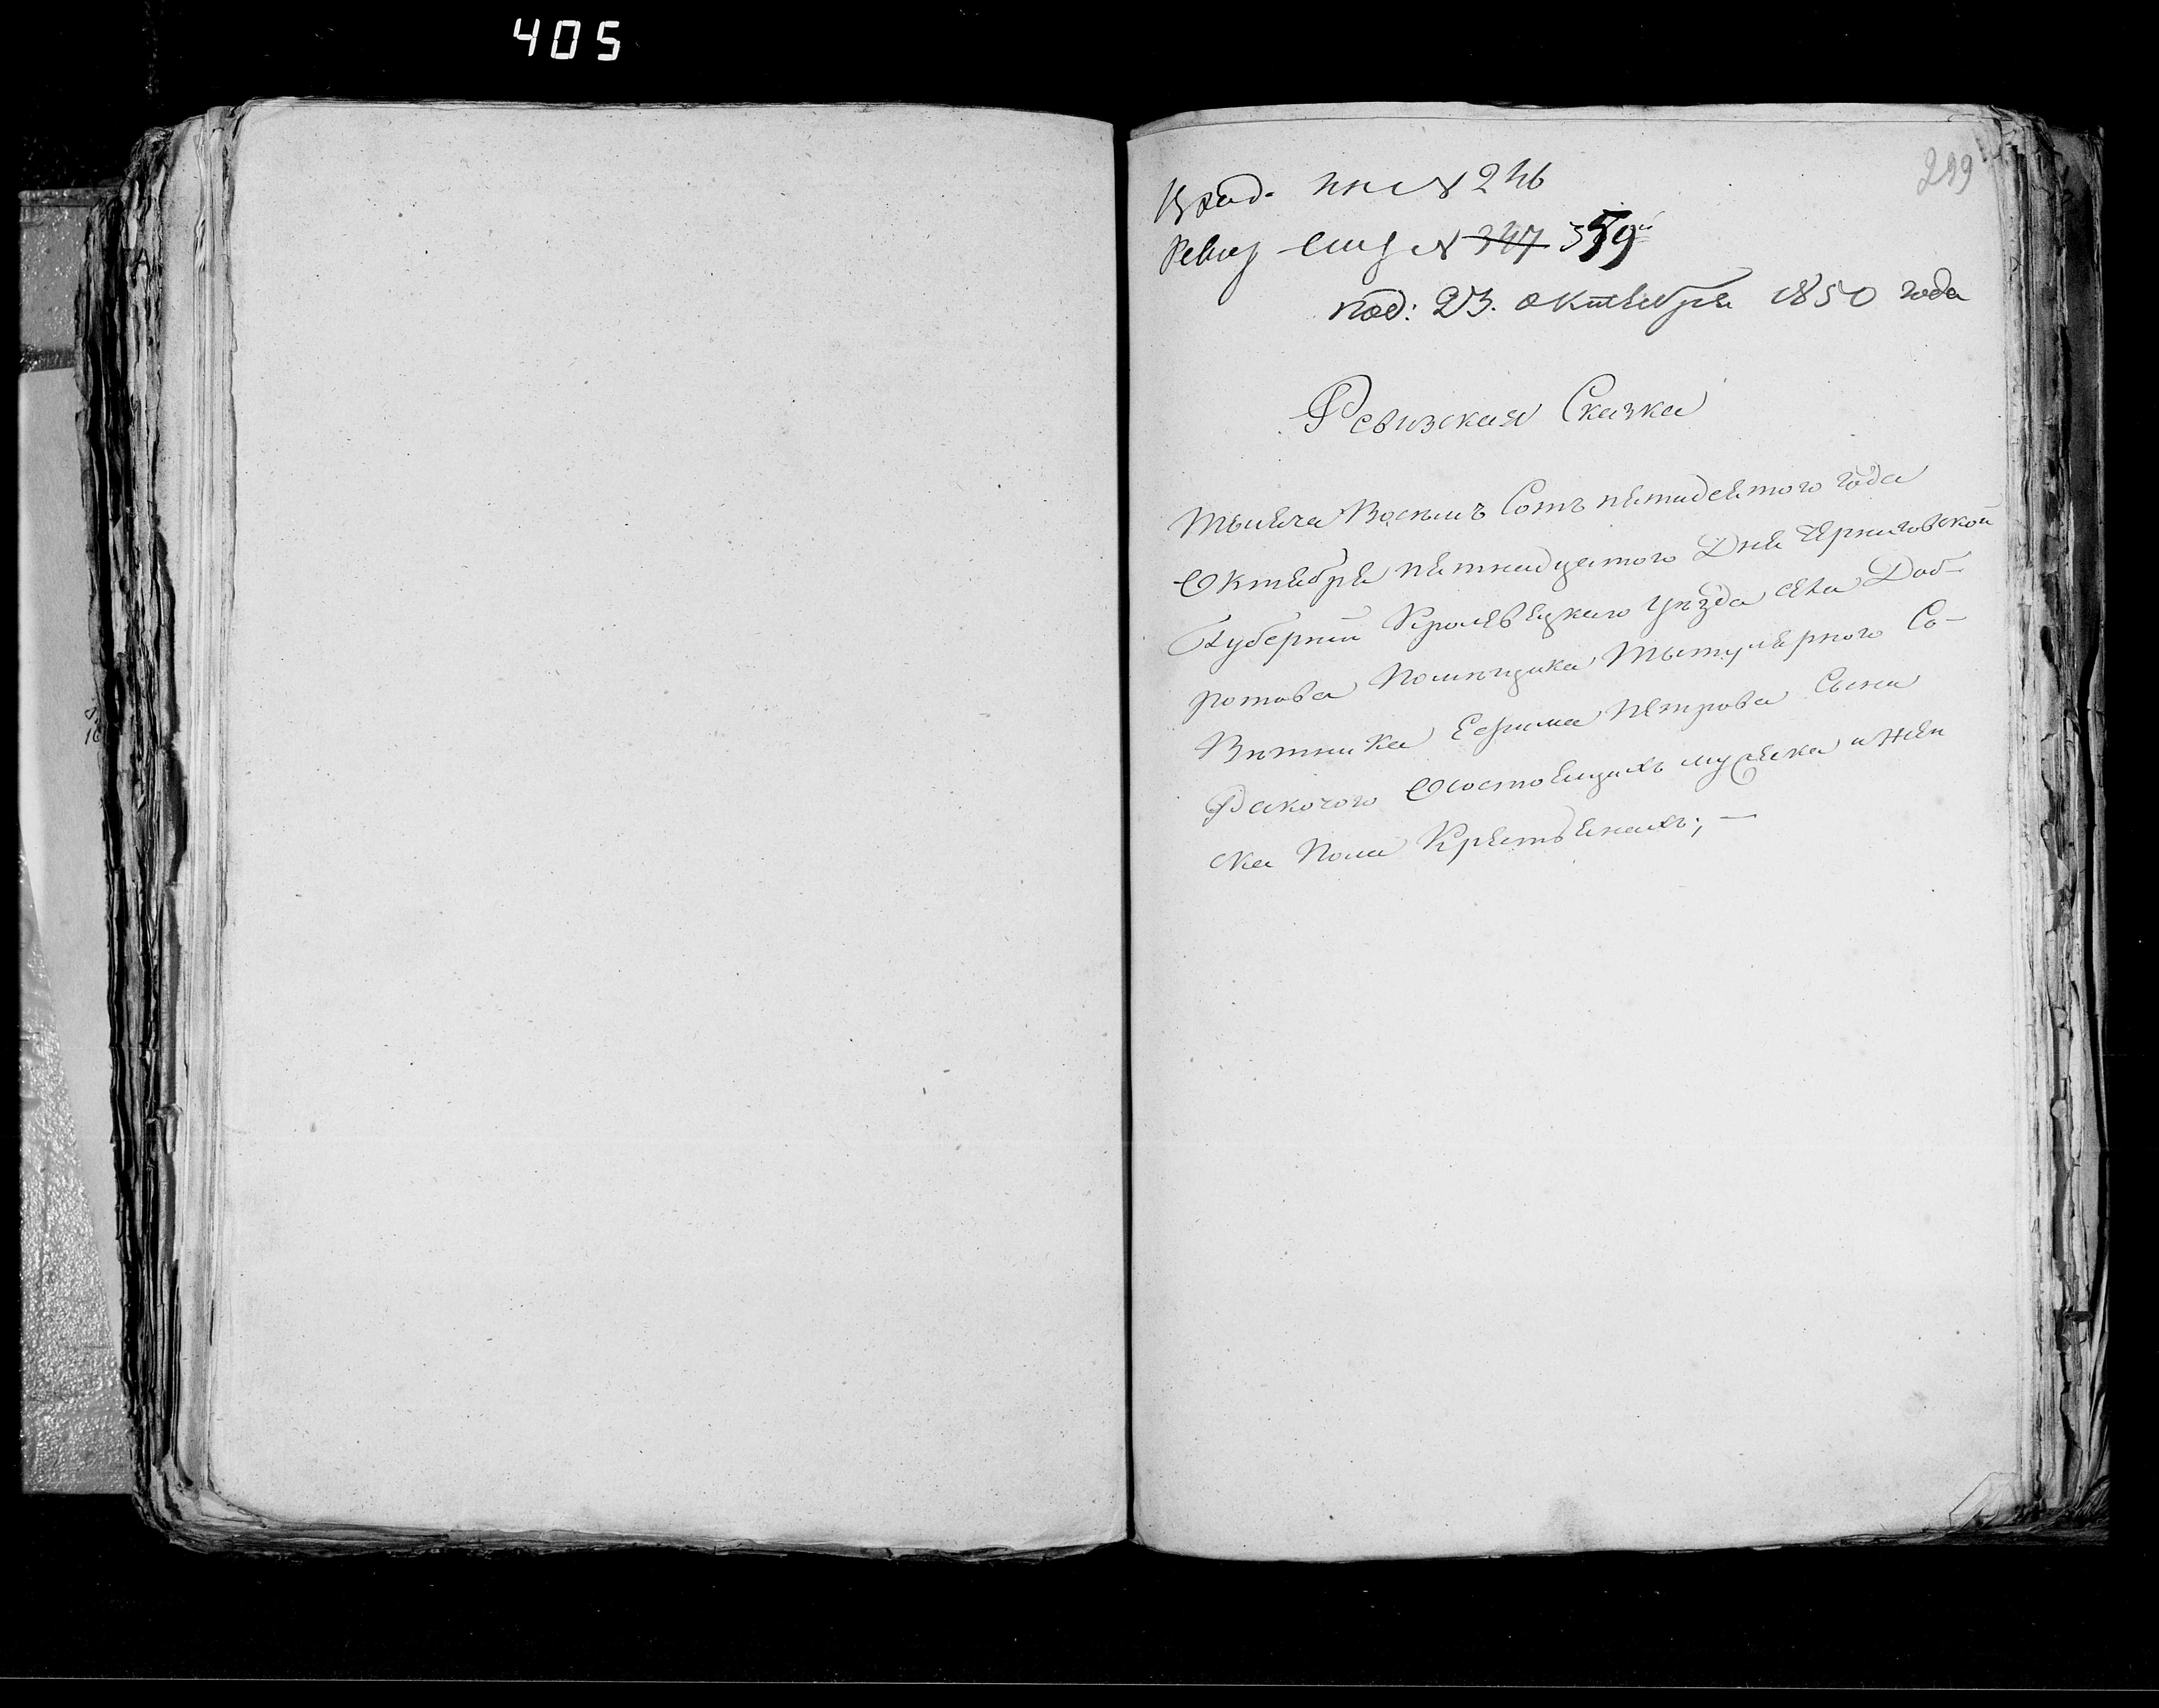 405
299
Вход. N 246
Ревиз N 347 359й
под: 23. октября 1850 года
Ревизская Сказка
Тысяча Восемъ Сотъ пятидсятого года
Октября пятнадцятого Дня Черниговской
Губернии Кролевецкаго уѣзда села Доб-
ротова Помѣщика Тытулярного Со-
вѣтника Ефима Петрова Сына
Ракочого Осостоящихъ мужска и жен
ска Пола Крестьянахъ; —